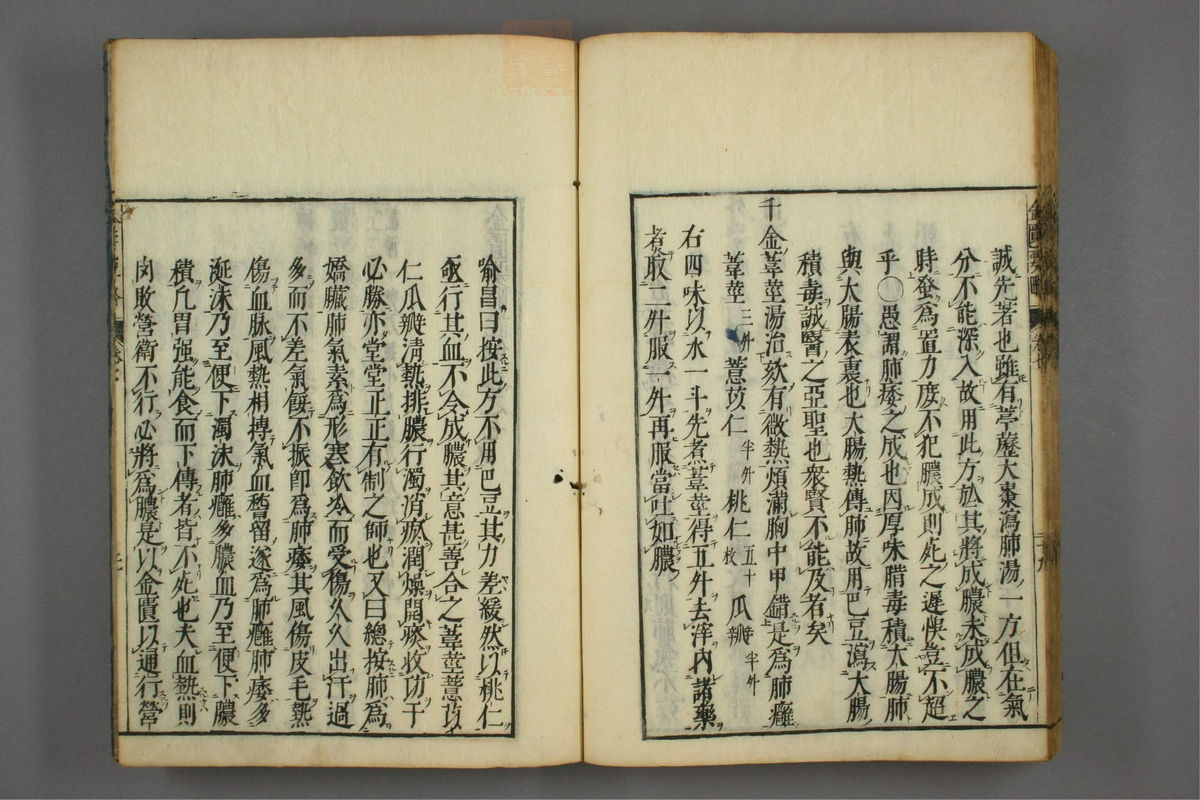 誠先著也雖有葶藶大棗瀉肺湯一方但在氣
分不能深入故用此方於其將成膿未成膿之
時發為置力庻不犯膿成則死之遲悮豈不超
乎○愚謂肺痿之成也因厚味腊毒積大腸肺
與大腸表裏也大腸熱傳肺故用巴豆瀉大腸
積毒誠醫之亞聖也衆賢不能及者矣
千金葦莖湯治欬有微熱煩滿胸中甲錯是為肺癰
葦莖三升 薏苡仁半升 桃仁五十枚 瓜瓣半升
右四味以水一斗先煮葦莖得五升去滓内諸藥
煮取二升服一升再服當吐如膿
喻昌曰按此方不用巴豆其力差緩然以桃仁
亟行其血不令成膿其意甚善合之葦莖薏苡
仁瓜瓣清熱排膿行濁消瘀潤燥開痰收功于
必勝亦堂堂正正有制之師也又曰總按肺為
嬌臟肺氣素為形寒飲冷而受傷久久出汗過
多而不差氣餒不振卽為肺痿其風傷皮毛熱
傷血脉風熱相搏氣血稽留遂為肺癰肺痿多
涎沫乃至便下濁沫肺癰多膿血乃至便下膿
積凢胃强能食而下傳者皆不死也夫血熱則
肉敗營衛不行必將為膿是以金匱以通行營
金匱要略